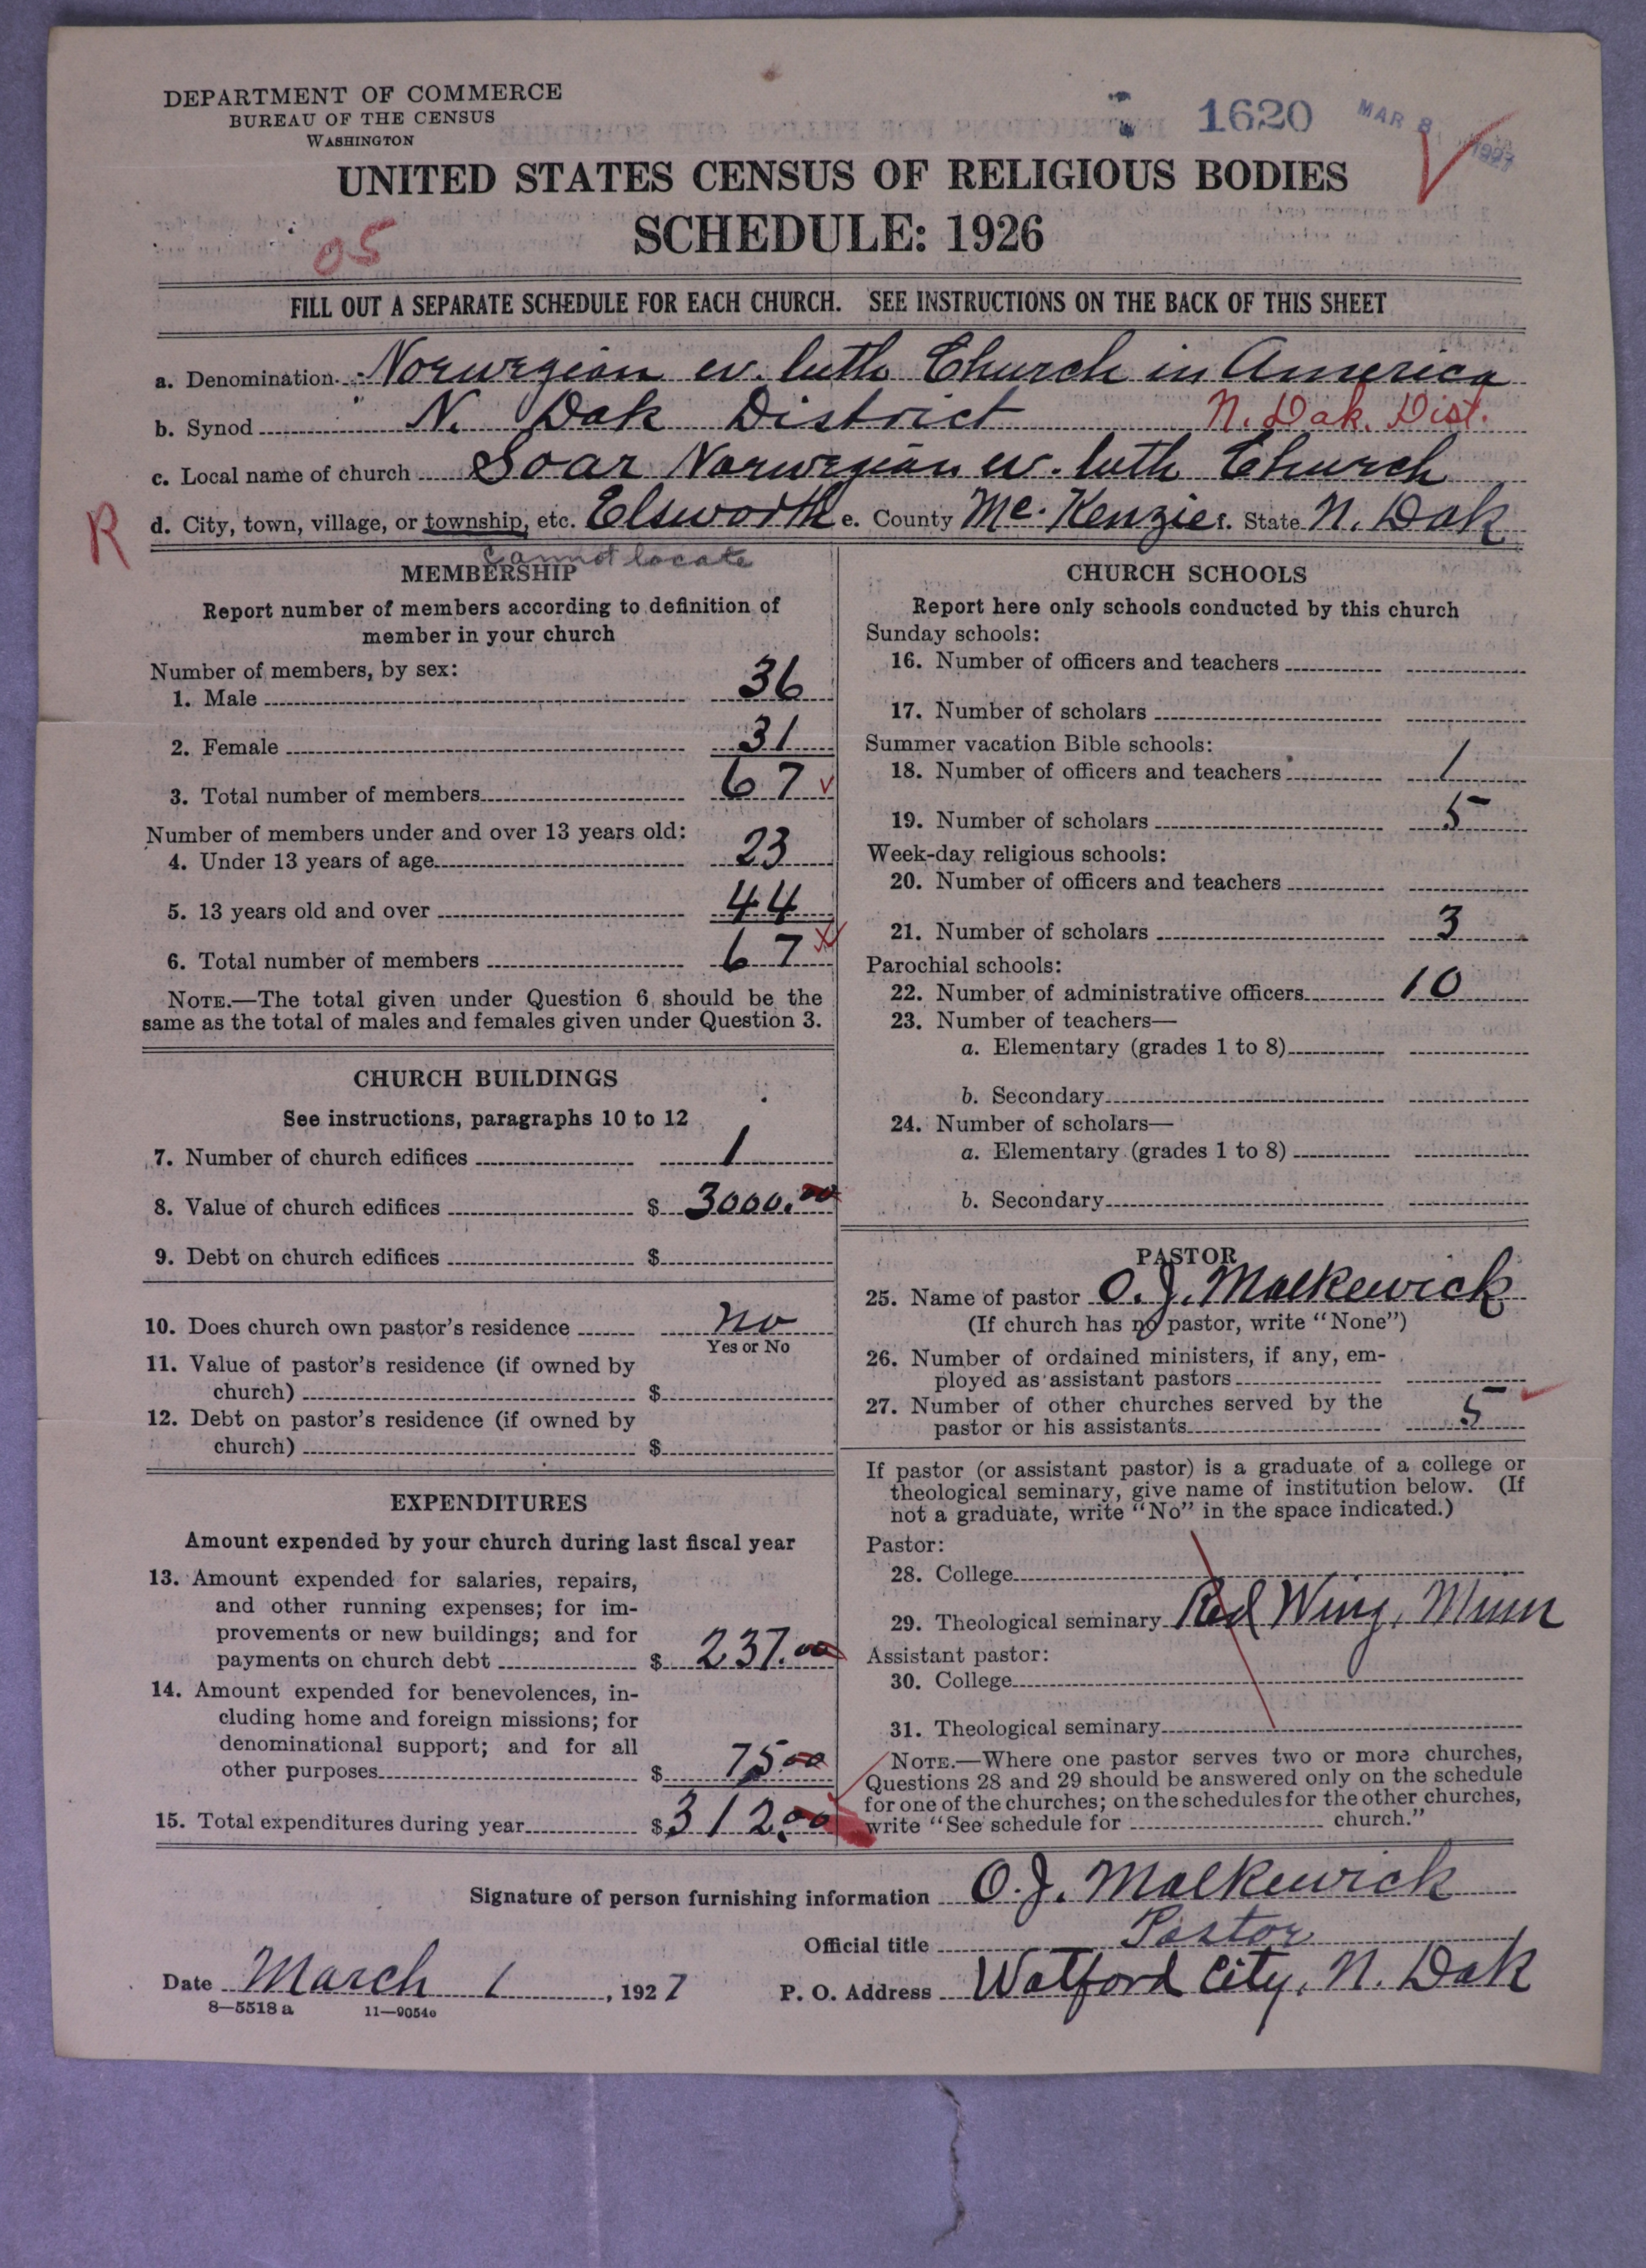 DEPARTMENT OF COMMERCE
BUREAU OF THE CENSUS
WASHINGTON
1620
MAR 8 1927
UNITED STATES CENSUS OF RELIGIOUS BODIES
SCHEDULE: 1926
05
FILL OUT A SEPARATE SCHEDULE FOR EACH CHURCH. SEE INSTRUCTIONS ON THE BACK OF THIS SHEET
a. Denomination Norwegian ev. luth. Church in America
b. Synod N. Dak District N. Dak. Dist.
c. Local name of church Soar Norwegian ev. luth Church
R
d. City, town, village, or township, etc. Elsworth e. County Mc. Kenzie f. State N. Dak
Cannot locate
MEMBERSHIP
Report number of members according to definition of
member in your church
Number of members, by sex:
1. Male 36
2. Female 31
3. Total number of members 67
Number of members under and over 13 years old:
4. Under 13 years of age 23
5. 13 years old and over 44
6. Total number of members 67
NOTE.—The total given under Question 6 should be the
same as the total of males and females given under Question 3.
CHURCH BUILDINGS
See instructions, paragraphs 10 to 12
7. Number of church edifices 1
8. Value of church edifices $ 3000.00
9. Debt on church edifices $
10. Does church own pastor's residence no
Yes or No
11. Value of pastor's residence (if owned by
church) $
12. Debt on pastor's residence (if owned by
church) $
EXPENDITURES
Amount expended by your church during last fiscal year
13. Amount expended for salaries, repairs,
and other running expenses; for im-
provements or new buildings; and for
payments on church debt $ 237.00
14. Amount expended for benevolences, in-
cluding home and foreign missions; for
denominational support; and for all
other purposes $ 75.00
15. Total expenditures during year $ 312.00
CHURCH SCHOOLS
Report here only schools conducted by this church
Sunday schools:
16. Number of officers and teachers
17. Number of scholars
Summer vacation Bible schools:
18. Number of officers and teachers 1
19. Number of scholars 5
Week-day religious schools:
20. Number of officers and teachers
21. Number of scholars 3
Parochial schools:
22. Number of administrative officers 10
23. Number of teachers—
a. Elementary (grades 1 to 8)
b. Secondary
24. Number of scholars—
a. Elementary (grades 1 to 8)
b. Secondary
PASTOR
25. Name of pastor O. J. Malkewick
(If church has no pastor, write "None")
26. Number of ordained ministers, if any, em-
ployed as assistant pastors
27. Number of other churches served by the
pastor or his assistants 5
If pastor (or assistant pastor) is a graduate of a college or
theological seminary, give name of institution below. (If
not a graduate, write "No" in the space indicated.)
Pastor:
28. College
29. Theological seminary Red Wing, Minn
Assistant pastor:
30. College
31. Theological seminary
NOTE.—Where one pastor serves two or more churches,
Questions 28 and 29 should be answered only on the schedule
for one of the churches; on the schedules for the other churches,
write "See schedule for church."
Signature of person furnishing information O. J. Malkewick
Official title Pastor
Date March 1, 1927 P. O. Address Watford City, N. Dak
8—5518 a 11—9054c